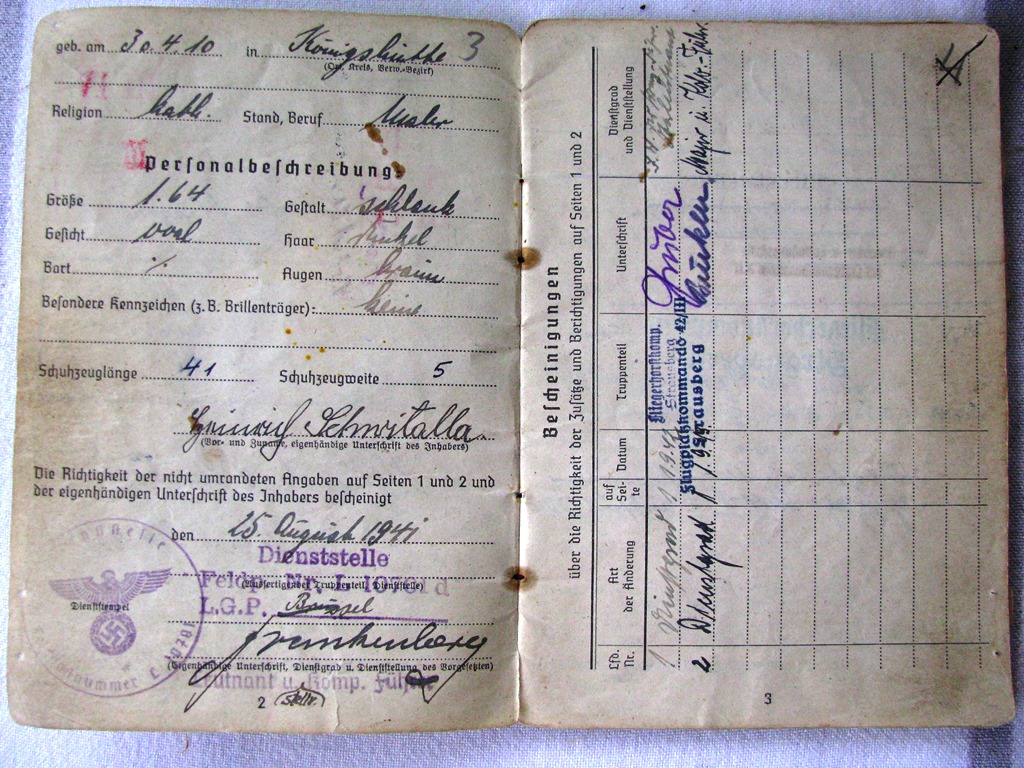 geb. am 30.4.10 in Königshütte 3
(Ort, Kreis, Verw.-Bezirk)
Religion kath. Stand, Beruf Maler
Personalbeschreibung
Größe 1.64 Gestalt schlank
Gesicht oval Haar dunkel
Bart ./. Augen braun
Besondere Kennzeichen (z.B. Brillenträger): keine
Schuhzeuglänge 41 Schuhzeugweite 5
Heinrich Schwitalla
(Vor- und Zuname, eigenhändige Unterschrift des Inhabers)
Die Richtigkeit der nicht umrandeten Angaben auf Seiten 1 und 2 und
der eigenhändigen Unterschrift des Inhabers bescheinigt
den 25. August 1941
Dienststelle
Feldp. Nr. L
(Ausfertigender Truppenteil, Dienststelle)
L.G.P. Brüssel
Dienststempel
Frankenberg
(Eigenhändige Unterschrift, Dienstgrad u. Dienststellung des Vorgesetzten)
Leutnant u. Komp. Führer
2 (Stellv.)
Bescheinigungen
über die Richtigkeit der Zusätze und Berichtigungen auf Seiten 1 und 2
Lfd. Nr. Art der Änderung auf Seite Datum Truppenteil Unterschrift Dienstgrad und Dienststellung
1 Dienstgrad 1 Fliegerhorstkomp. Strausberg Gruber
2 Dienstgrad 1 Flugplatzkommando 42/III Strausberg Major u.
3